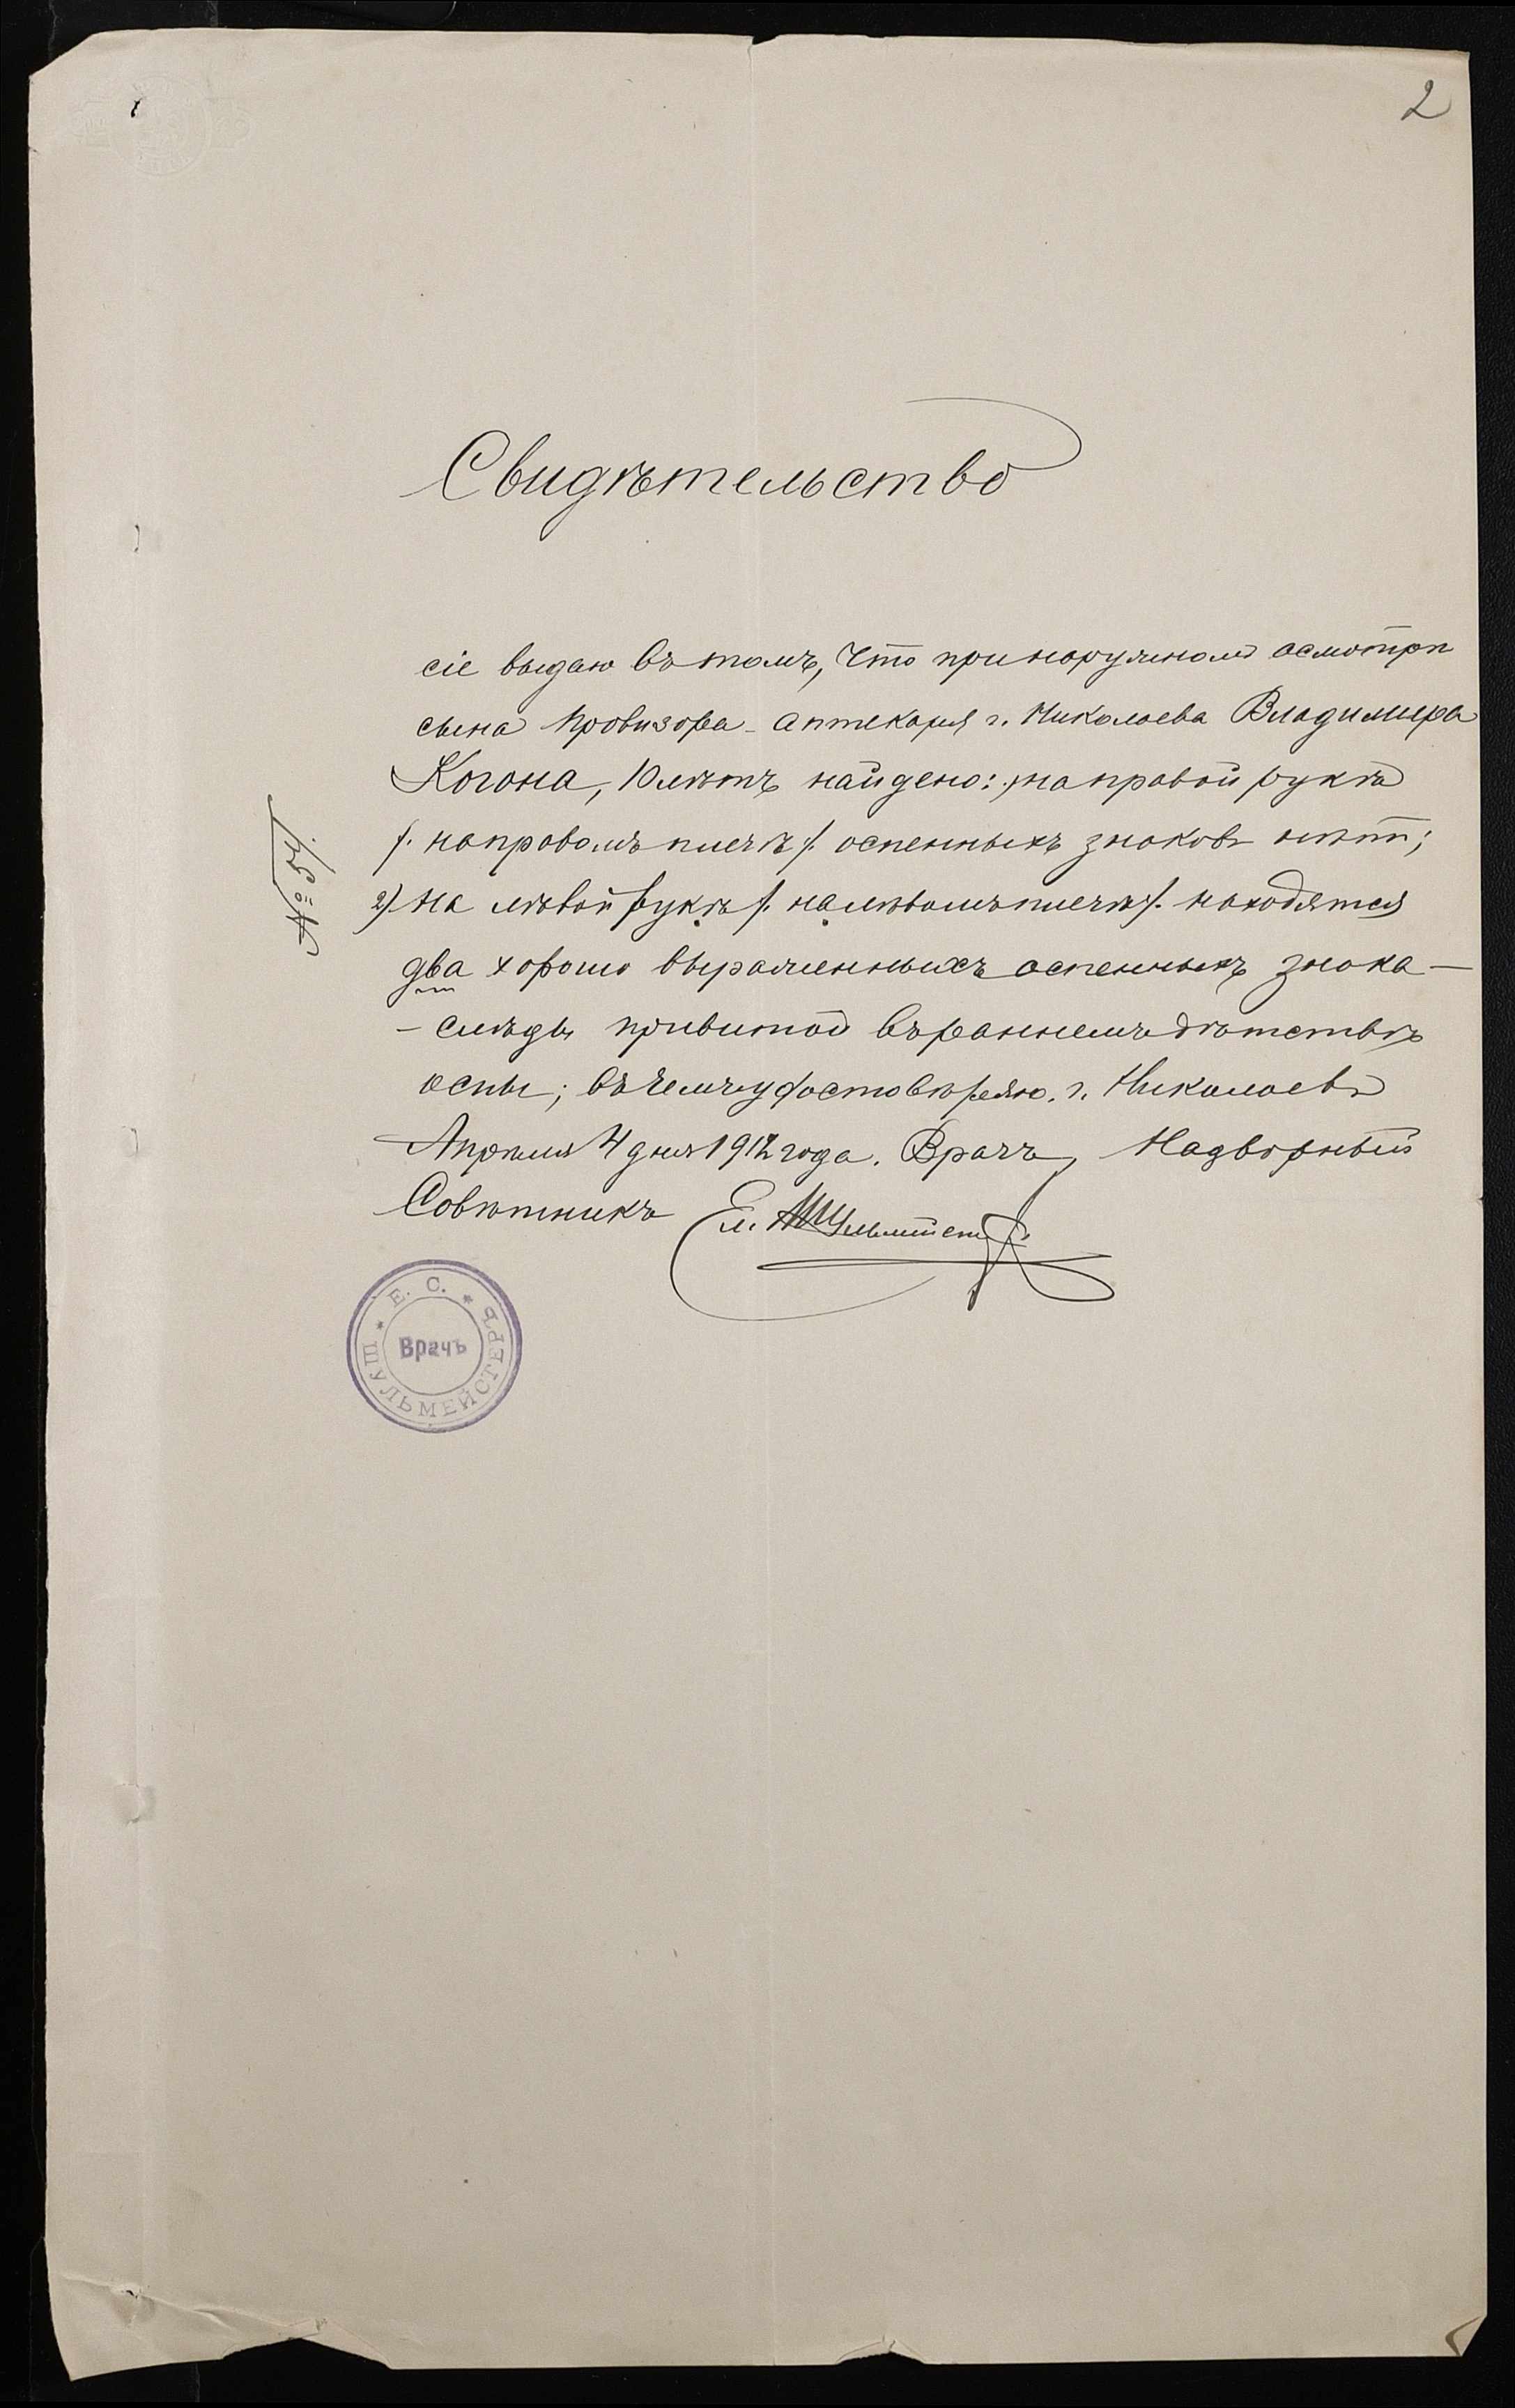 2
Свидѣтельство
сіе выдаю въ томъ, что при наружномъ осмотрѣ
сына провизора-аптекаря г. Николаева Владимира
Когона, 10 лѣтъ найдено: 1) на правой рукѣ
/. на правомъ плечѣ /. оспенныхъ знаковъ нѣтъ;
2) на лѣвой рукѣ /. на лѣвомъ плечѣ /. находятся
два хорошо выраженныхъ оспенныхъ знака —
— слѣды привитой въ раннемъ дѣтствѣ
оспы; въ чемъ удостовѣряю. г. Николаевъ
Апрѣля 4 дня 1912 года. Врачъ, Надворный
Совѣтникъ Ем. Шульмейстеръ
* Е. С. *
Врачъ
ШУЛЬМЕЙСТЕРЪ